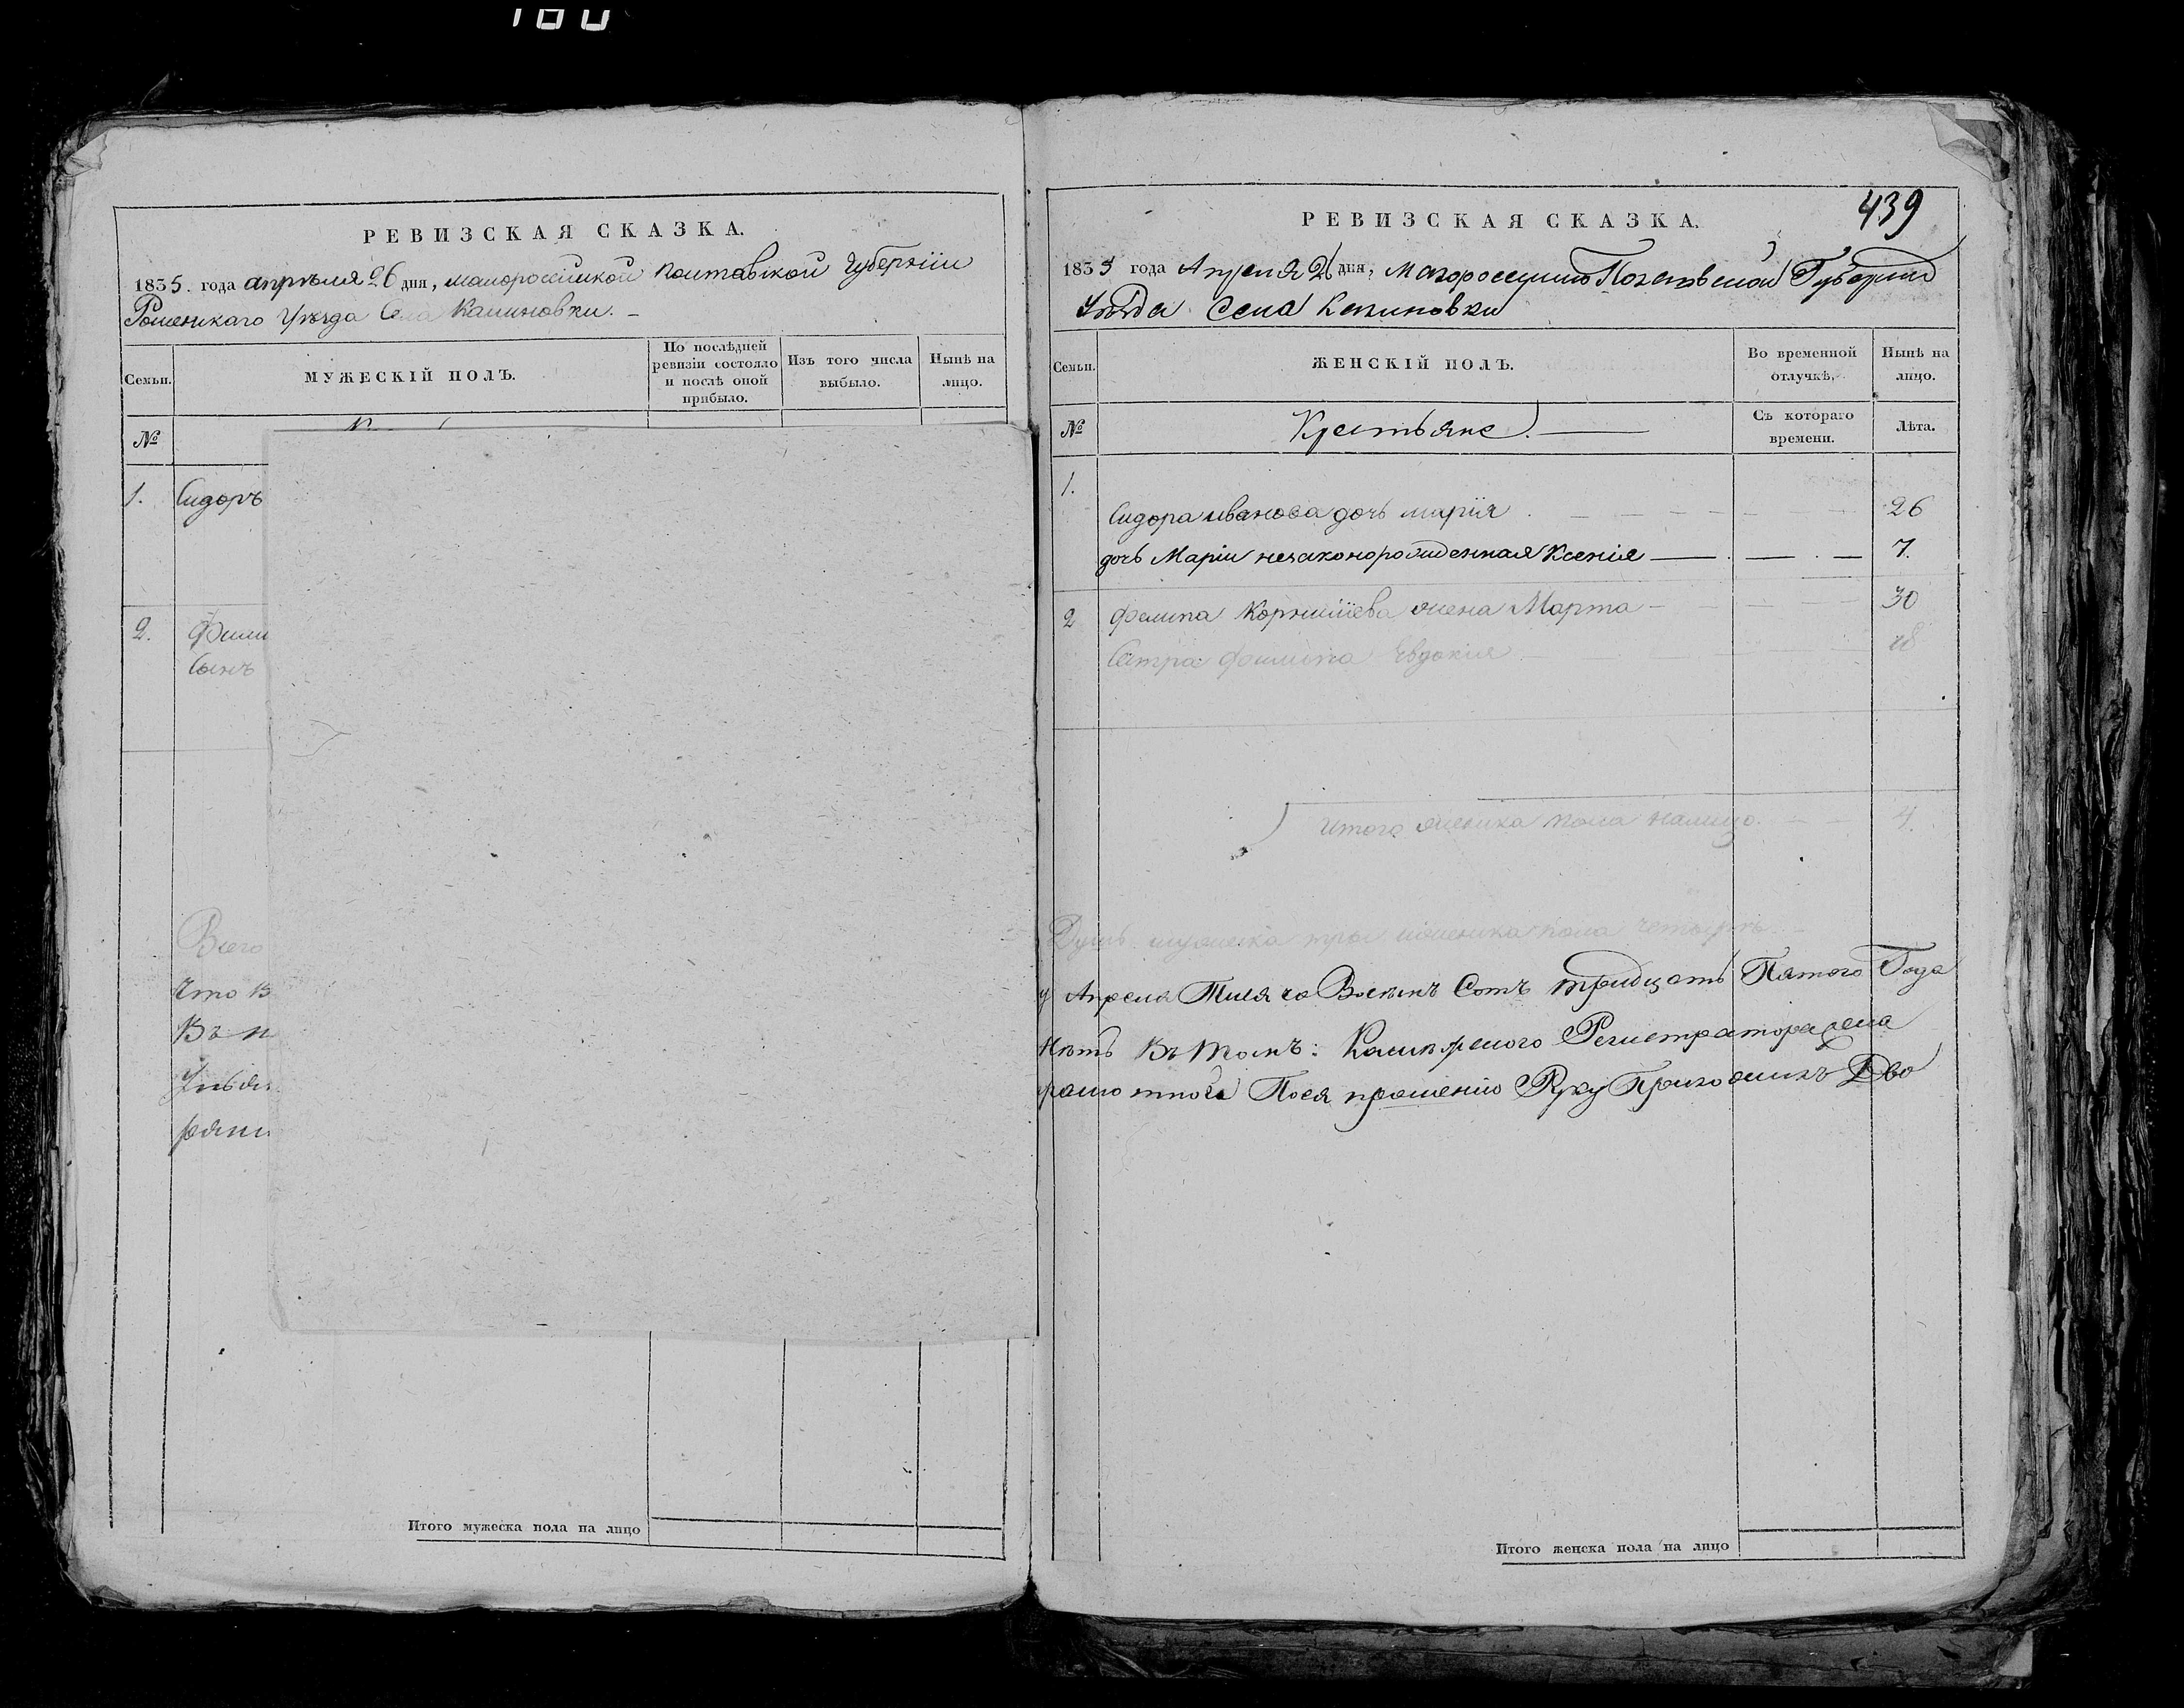 180
РЕВИЗСКАЯ СКАЗКА.
1835. года апрѣля 26 дня, малоросѣйской полтавской губернїи
Роменскаго уѣзда Села Калиновки. –
Семьи.
МУЖЕСКІЙ ПОЛЪ.
По послѣдней ревизіи состояло и послѣ оной прибыло.
Изъ того числа выбыло.
Нынѣ на лицо.
№
1. Сидоръ
2. Фили
Сынъ
Всего
Что в
Въ н
Уѣзд
рян
Итого мужеска пола на лицо
439
РЕВИЗСКАЯ СКАЗКА.
1835 года Апреля 26 дня, Малоросецкой Полтавской Губернии
Уѣзда Села Калиновки
Семьи.
ЖЕНСКІЙ ПОЛЪ.
Во временной отлучкѣ,
Нынѣ на лицо.
№
Крестьяне.
Съ котораго времени.
Лѣта.
1.
Сидора иванова дочь марїя 26
дочь Маріи незаконорожденная Ксенія 7.
2 Филипа Корнилїева жена Марта 30
Сестра Филипа Евдокия 18
Итого женска пола налицо. 4.
Душъ мужеска три женска пола четыри
Апреля Тисяча Восѣмъ Сотъ тридцать Пятого Года
Нѣтъ Въ томъ: Регистратора
Поея прошению Руку Приложилъ Дво
Итого женска пола на лицо